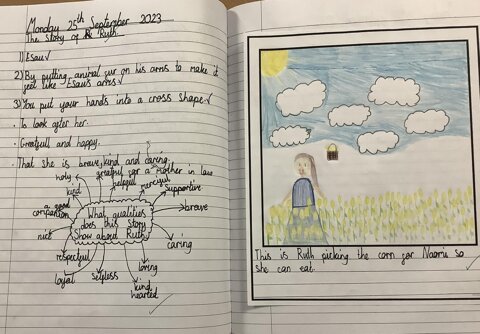 Monday 25th September 2023
The Story of Ruth.
1) Esau
2) By putting animal fur on his arms to make it
feel like Esau's arms
3) You put your hands into a cross shape
· To look after her.
· Greatfull and happy.
· That she is brave, kind and caring.
holy
kind
grateful for a mother in law
helpful
merciful
supportive
a good
companion
brave
What qualities
does this Story
Show about Ruth
nice
caring
respectful
loyal
selfless
loving
kind
hearted
This is Ruth picking the corn for Naomi so
she can eat.